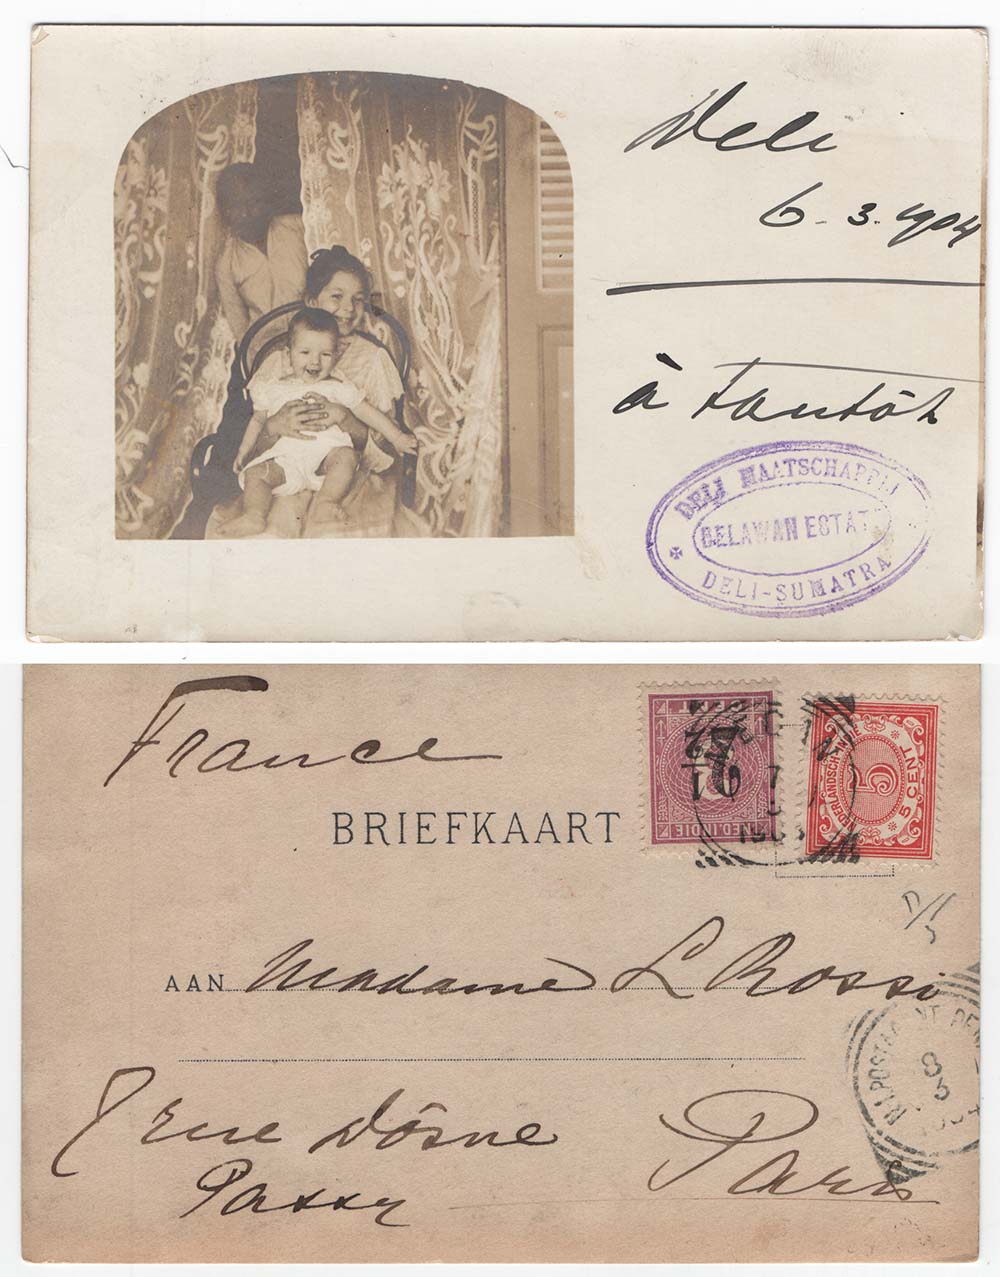 Deli
6-3-1904
à tantôt
DELI MAATSCHAPPIJ
BELAWAN ESTATE
DELI-SUMATRA
France
BRIEFKAART
NED. INDIE
2½
CENT
NEDERLANDSCH-INDIE
5
5 CENT
7
3
AAN Madame L Rossi
8
3
7 rue Dôsne
Passy Paris